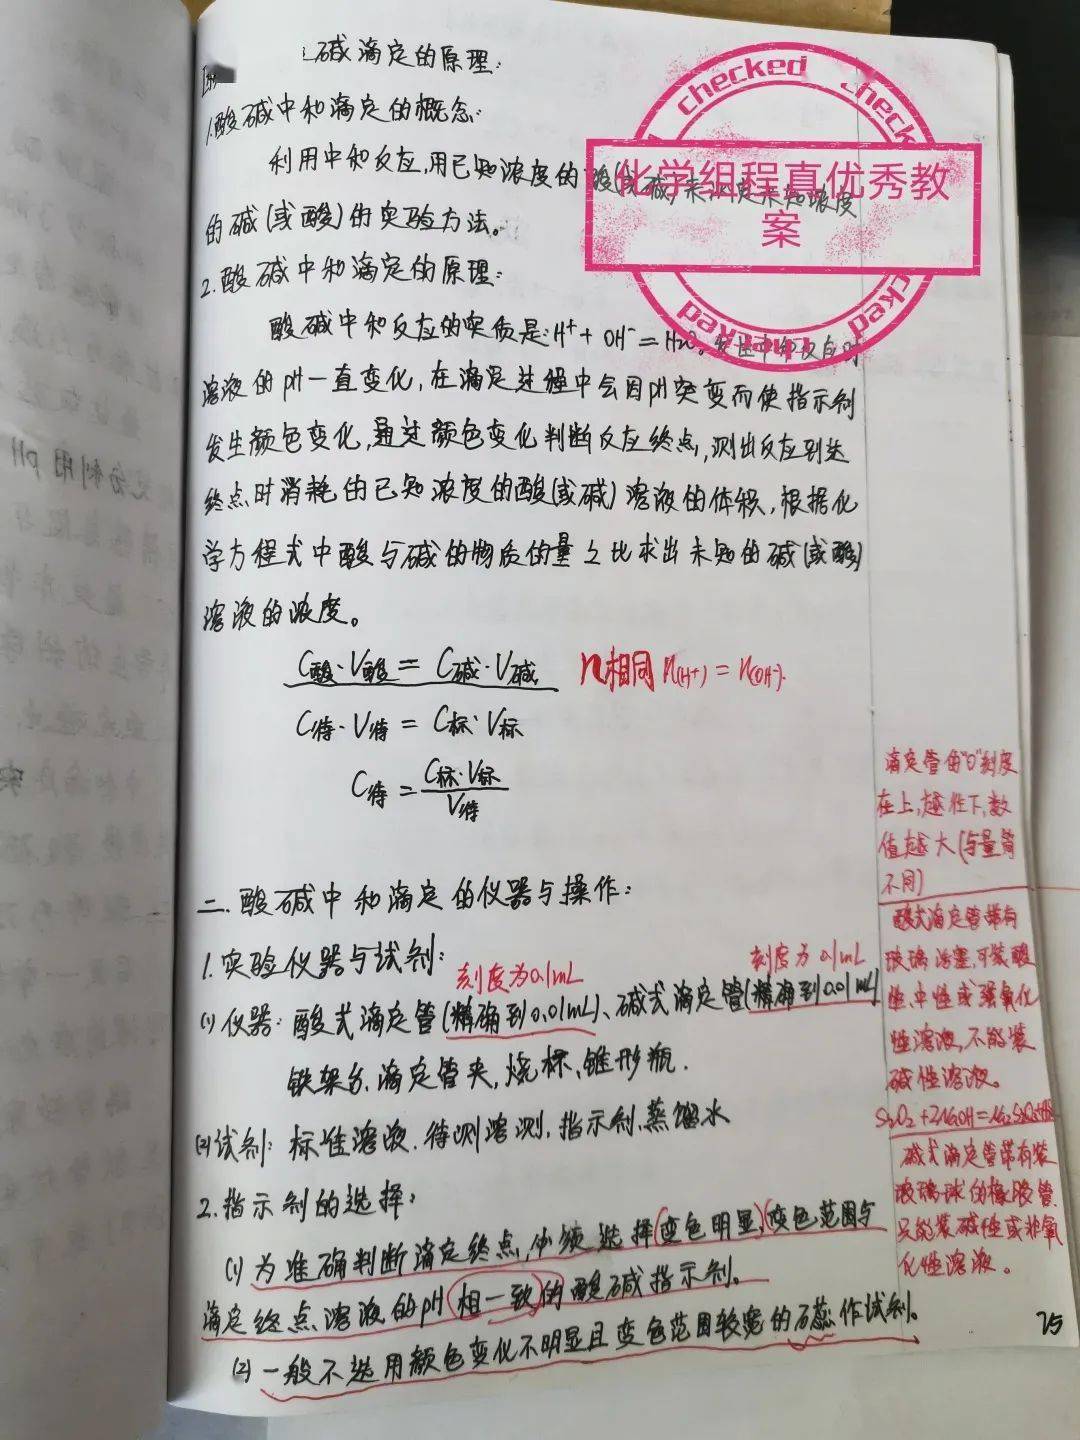 碱滴定的原理:
1.酸碱中和滴定的概念:
利用中和反应,用已知浓度的酸(或碱)来测定未知浓度
的碱(或酸)的实验方法。
2.酸碱中和滴定的原理:
酸碱中和反应的实质是:H⁺+OH⁻=H₂O。发生中和反应时
溶液的pH一直变化,在滴定过程中会因pH突变而使指示剂
发生颜色变化,通过颜色变化判断反应终点,测出反应到达
终点时消耗的已知浓度的酸(或碱)溶液的体积,根据化
学方程式中酸与碱的物质的量之比求出未知的碱(或酸)
溶液的浓度。
C酸·V酸=C碱·V碱 n相同 n(H+)=n(OH-).
C待·V待=C标·V标
C待=C标·V标/V待
二.酸碱中和滴定的仪器与操作:
1.实验仪器与试剂:
刻度为0.1mL 刻度为0.1mL
(1)仪器:酸式滴定管(精确到0.01mL)、碱式滴定管(精确到0.01mL)
铁架台、滴定管夹,烧杯、锥形瓶.
(2)试剂:标准溶液.待测溶测,指示剂,蒸馏水
2.指示剂的选择:
(1)为准确判断滴定终点,必须选择(变色明显,)变色范围与
滴定终点溶液的pH相一致的酸碱指示剂。
(2)一般不选用颜色变化不明显且变色范围较宽的石蕊作试剂。
滴定管的"0"刻度
在上,越往下,数
值越大(与量筒
不同)
酸式滴定管带有
玻璃活塞,可装酸
性,中性或强氧化
性溶液,不能装
碱性溶液。
碱式滴定管带有装
玻璃球的橡胶管
只能装碱性或非氧
化性溶液。
25
checked
checked
checked
checked
化学组程真优秀教
案